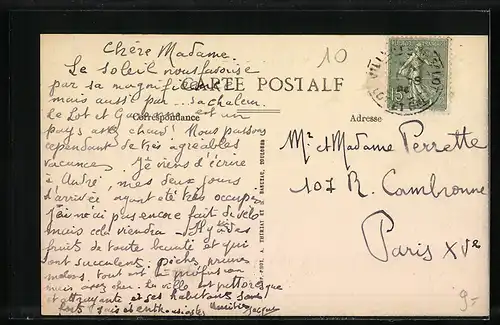 Chère Madame.
Le soleil nous favorise
par sa magnificence
mais aussi par ... sa chaleur.
le Lot et Garonne est un
pays assez chaud! Nous passons
cependant de très agréables
vacances. Je viens d'écrire
à André, mes deux jours
d'arrivée ayant été très occupés.
J'ai n'ai pas encore fait de vélo
mais cela viendra - Il y a des
fruits de toute beauté et qui
sont succulents. Pêches, prunes
melons, tout est à profusion
mais assez cher. la ville est pittoresque
et attrayante et ses habitants sont
forts gais et enthousiastes
Jacques
CARTE POSTALE
Correspondance
Adresse
10
Mr et Madame Perrette
107 R. Cambronne
Paris XVe
9.-